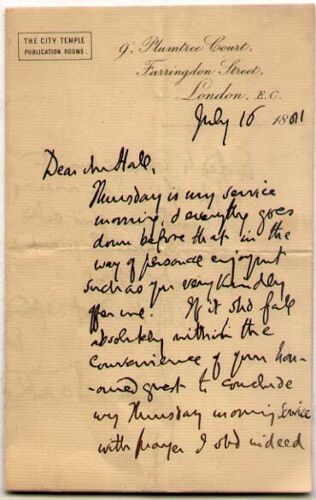 THE CITY TEMPLE
PUBLICATION ROOMS.
9, Plumtree Court,
Farringdon Street,
London, E.C.
July 16 18
Dear Mr Hall,
Thursday is my service
morning, & everything goes
down before that in the
way of personal enjoyment
such as you very kindly
offer me. If it shd fall
absolutely within the
convenience of your hon-
-oured guest to conclude
my Thursday morning service
with prayer I shd indeed